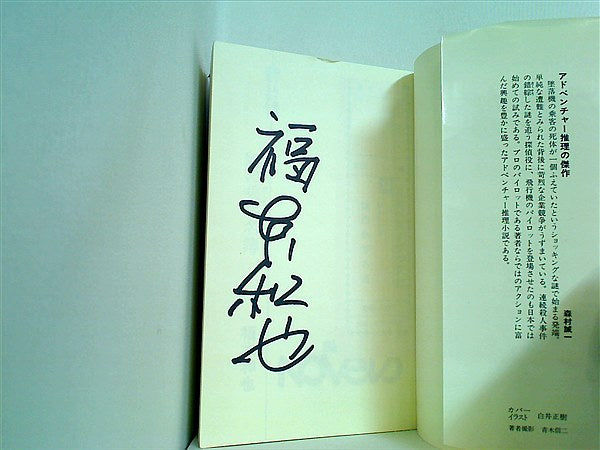 アドベンチャー推理の傑作
森村誠一
墜落機の乗客の死体が一個ふえていたというショッキングな謎で始まる発端。
単純な遭難とみられた背後に苛烈な企業競争がうずまいている。連続殺人事件
の錯綜した謎を追う探偵役に、飛行機のパイロットを登場させたのも日本では
始めての試みである。プロのパイロットである著者ならではのアクションに富
んだ興趣を豊かに盛ったアドベンチャー推理小説である。
カバーイラスト 白井正樹
著者撮影 青木信二
福本和也